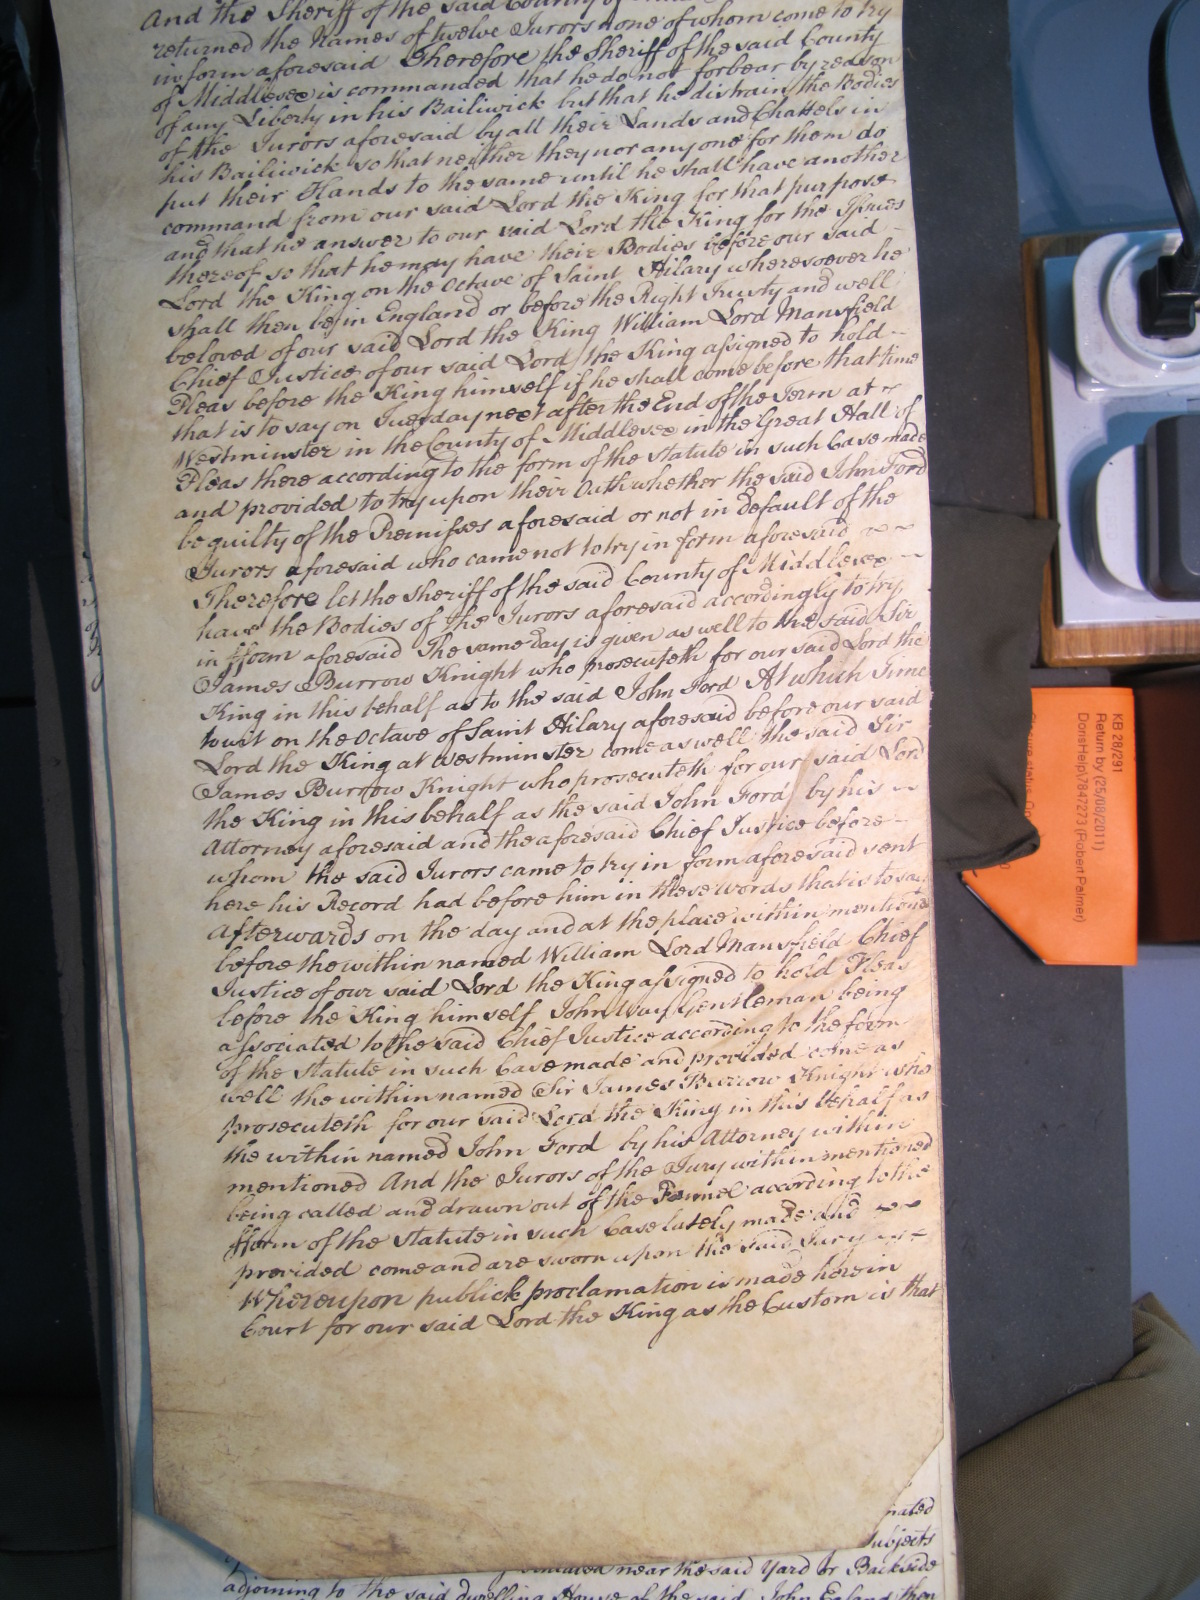 And the Sheriff of the said County of
returned the Names of twelve Jurors none of whom come to try
in form aforesaid Therefore the Sheriff of the said County
of Middlesex is commanded that he do not forbear by reason
of any Liberty in his Bailiwick but that he distrain the Bodies
of the Jurors aforesaid by all their Lands and Chattels in
his Bailiwick so that neither they nor any one for them do
put their Hands to the same until he shall have another
command from our said Lord the King for that purpose
and that he answer to our said Lord the King for the Issues
thereof so that he may have their Bodies before our said
Lord the King on the Octave of Saint Hilary wheresoever he
shall then be in England or before the Right Trusty and well
beloved of our said Lord the King William Lord Mansfield
Chief Justice of our said Lord the King assigned to hold
Pleas before the King himself if he shall come before that time
that is to say on Tuesday next after the End of the Term at
Westminster in the County of Middlesex in the Great Hall of
Pleas there according to the form of the statute in such Case made
and provided to try upon their Oath whether the said John Ford
be guilty of the Premisses aforesaid or not in Default of the
Jurors aforesaid who came not to try in form aforesaid
Therefore let the Sheriff of the said County of Middlesex
have the Bodies of the Jurors aforesaid accordingly to try
in fform aforesaid The same day is given as well to the said Sir
James Burrow Knight who prosecuteth for our said Lord the
King in this behalf as to the said John Ford At which Time
to wit on the Octave of Saint Hilary aforesaid before our said
Lord the King at Westminster come as well the said Sir
James Burrow Knight who prosecuteth for our said Lord
the King in this behalf as the said John Ford by his
Attorney aforesaid and the aforesaid Chief Justice before
whom the said Jurors came to try in form aforesaid sent
here his Record had before him in these words that is to say
Afterwards on the day and at the place within mentioned
before the within named William Lord Mansfield Chief
Justice of our said Lord the King assigned to hold Pleas
before the King himself John Way Gentleman being
associated to the said Chief Justice according to the form
of the statute in such Case made and provided come as
well the within named Sir James Burrow Knight who
prosecuteth for our said Lord the King in this behalf as
the within named John Ford by his Attorney within
mentioned And the Jurors of the Jury within mentioned
being called and drawn out of the Pannel according to the
fform of the statute in such Case lately made and
provided come and are sworn upon the said Jury
Whereupon publick proclamation is made here in
Court for our said Lord the King as the Custom is that
nated
subjects
near the said Yard or Backside
adjoining to the said dwelling House of the said John England then
KB 28/291
Return by (25/08/2011)
DorisHelp\7847273 (Robert Palmer)